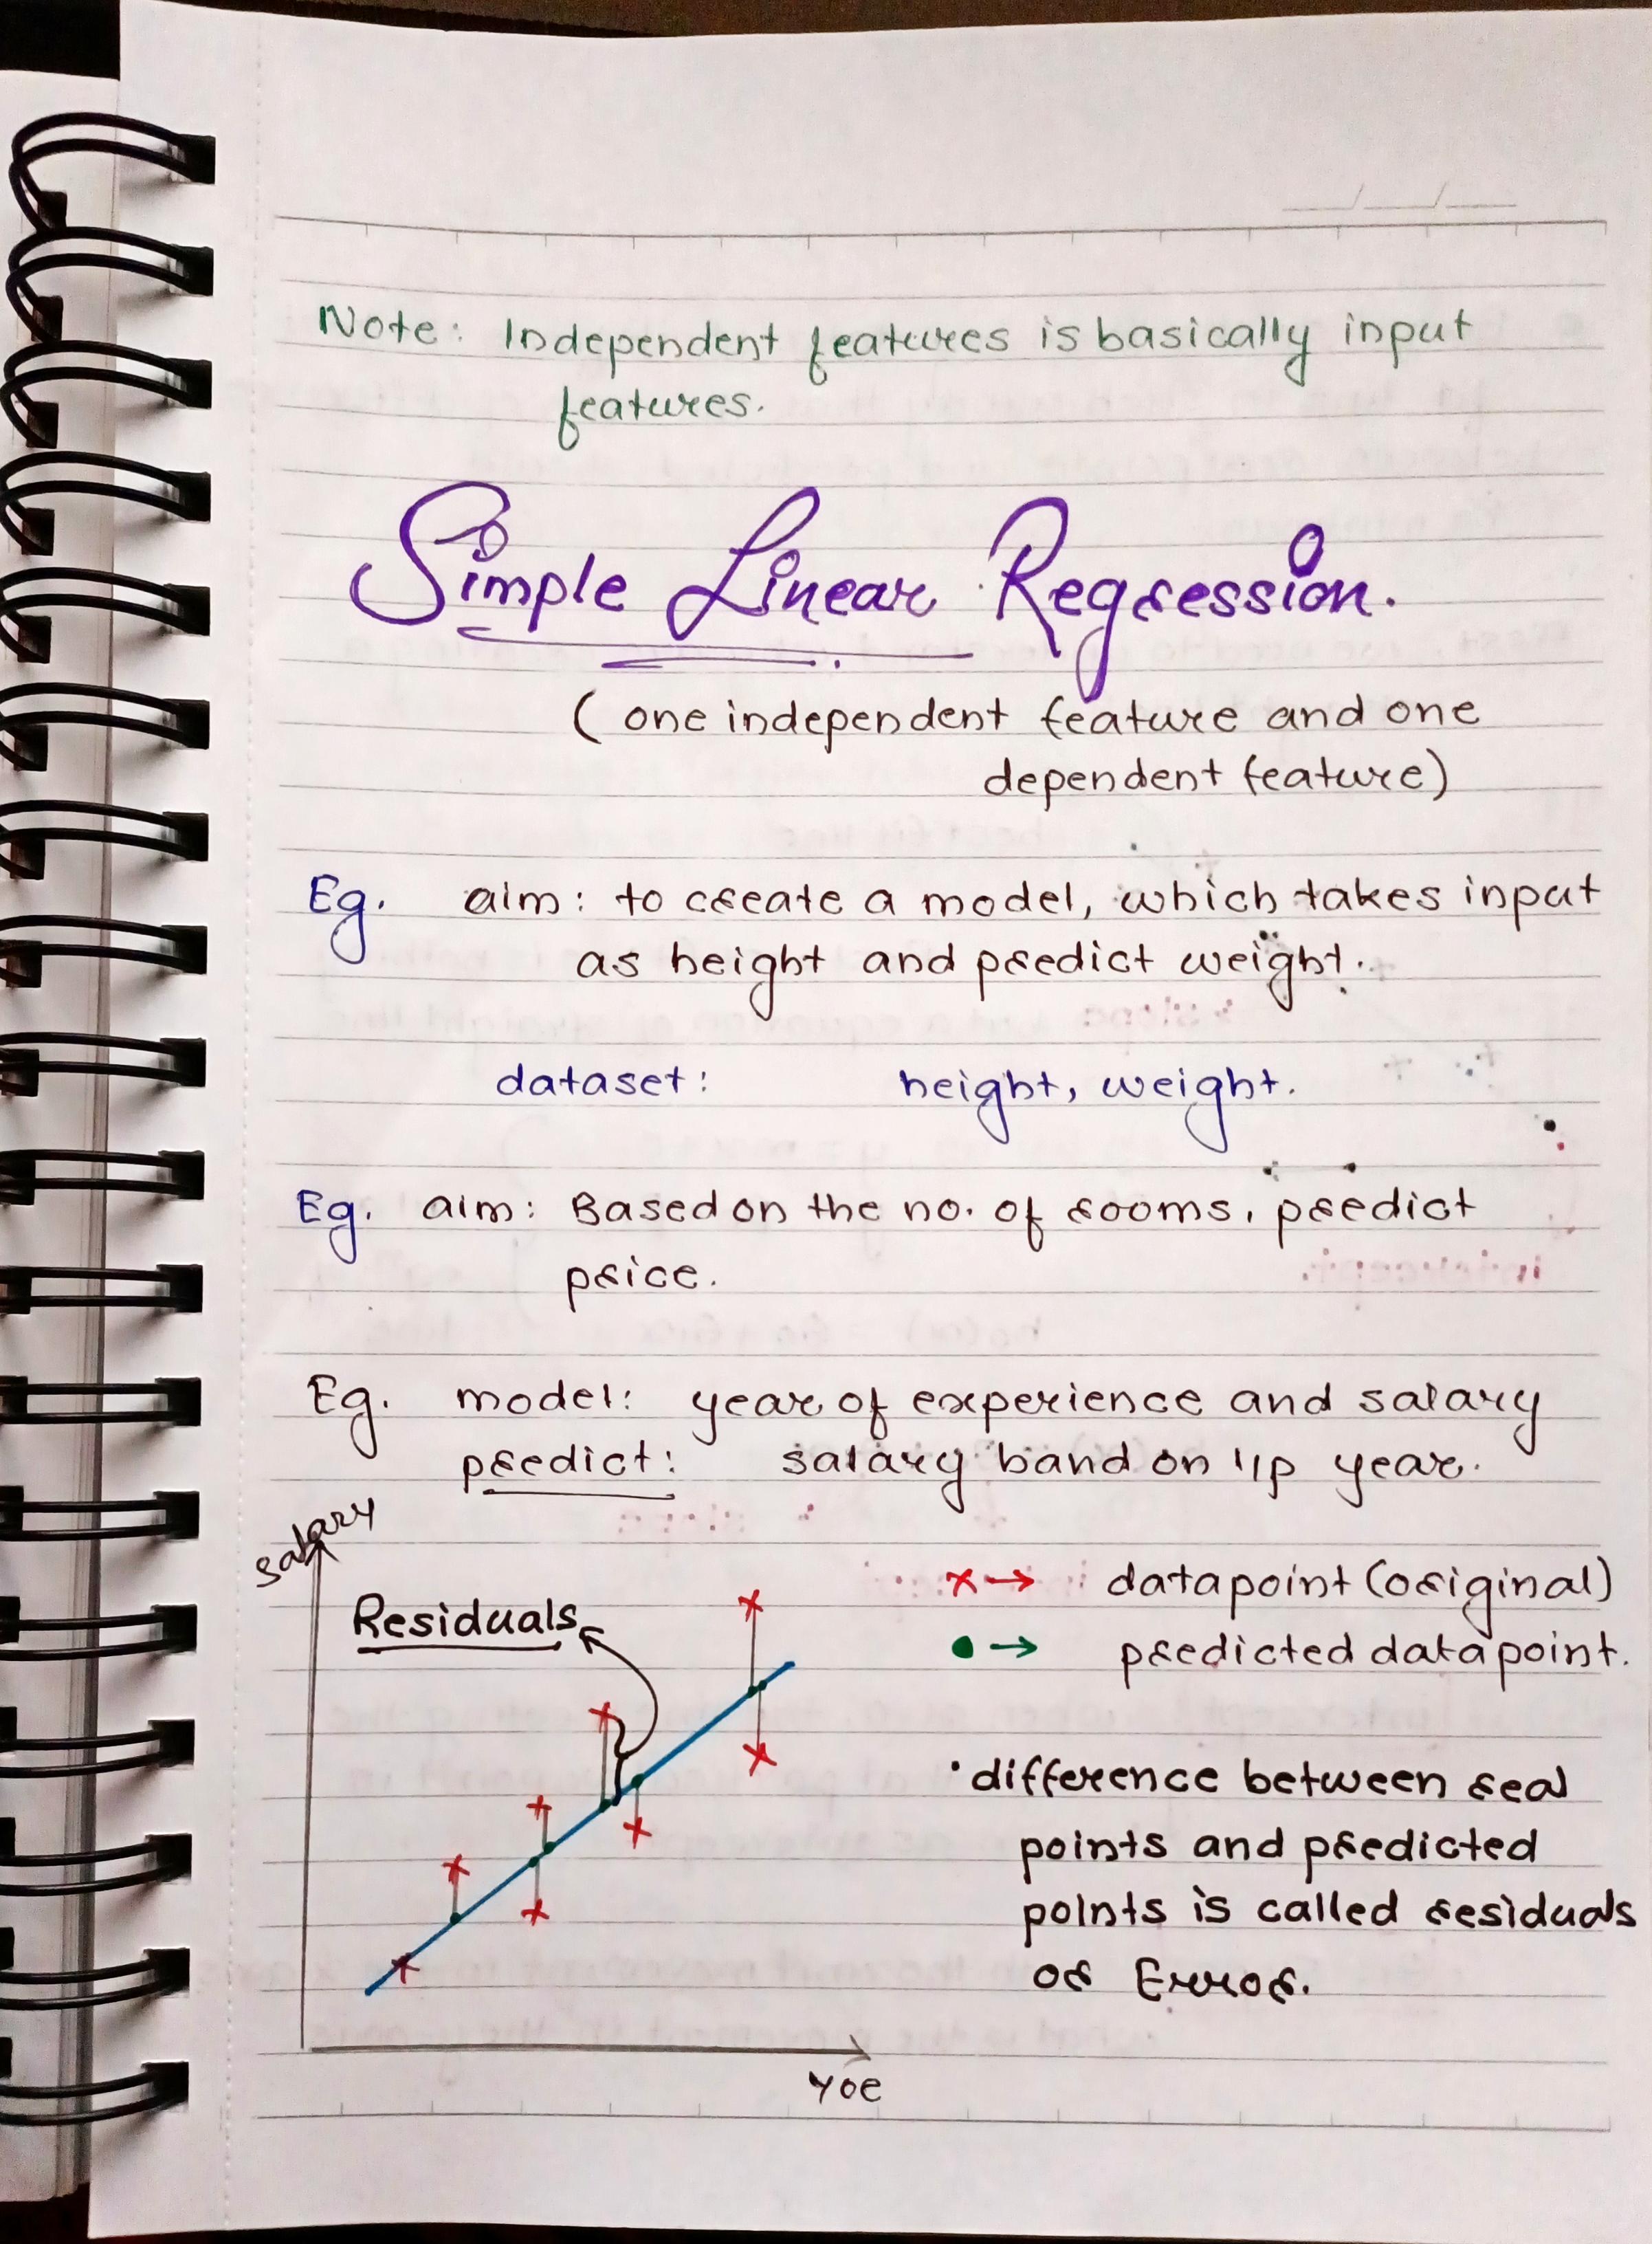 Note: Independent features is basically input
features.
Simple Linear Regression.
( one independent feature and one
dependent feature)
Eg. aim: to create a model, which takes input
as height and predict weight.
dataset: height, weight.
Eg. aim: Based on the no. of rooms, predict
price.
Eg. model: year of experience and salary
predict: salary band on I/p year.
salary
Residuals
x→ datapoint (original)
•→ predicted datapoint.
• difference between real
points and predicted
points is called residuals
or Error.
YOE